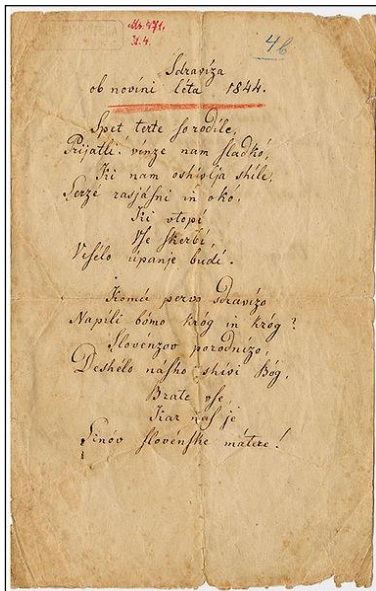 Ms. 471,
N. 4.
4b
Sdraviza
ob novini léta 1844.
Spet terte so rodile,
Prijatli! vinze nam sladkó,
Ki nam oshivlja shile,
Serzé rasjásni in okó,
Ki vtopi
Vse skerbi,
V upanje budi.
Komu pervo Sdravizo
Napili bómo króg in króg?
Slovénzov porodnizo,
Deshélo násho shivi Bóg,
Brate vse,
Kar nas je
Sinóv slovénske mátere!